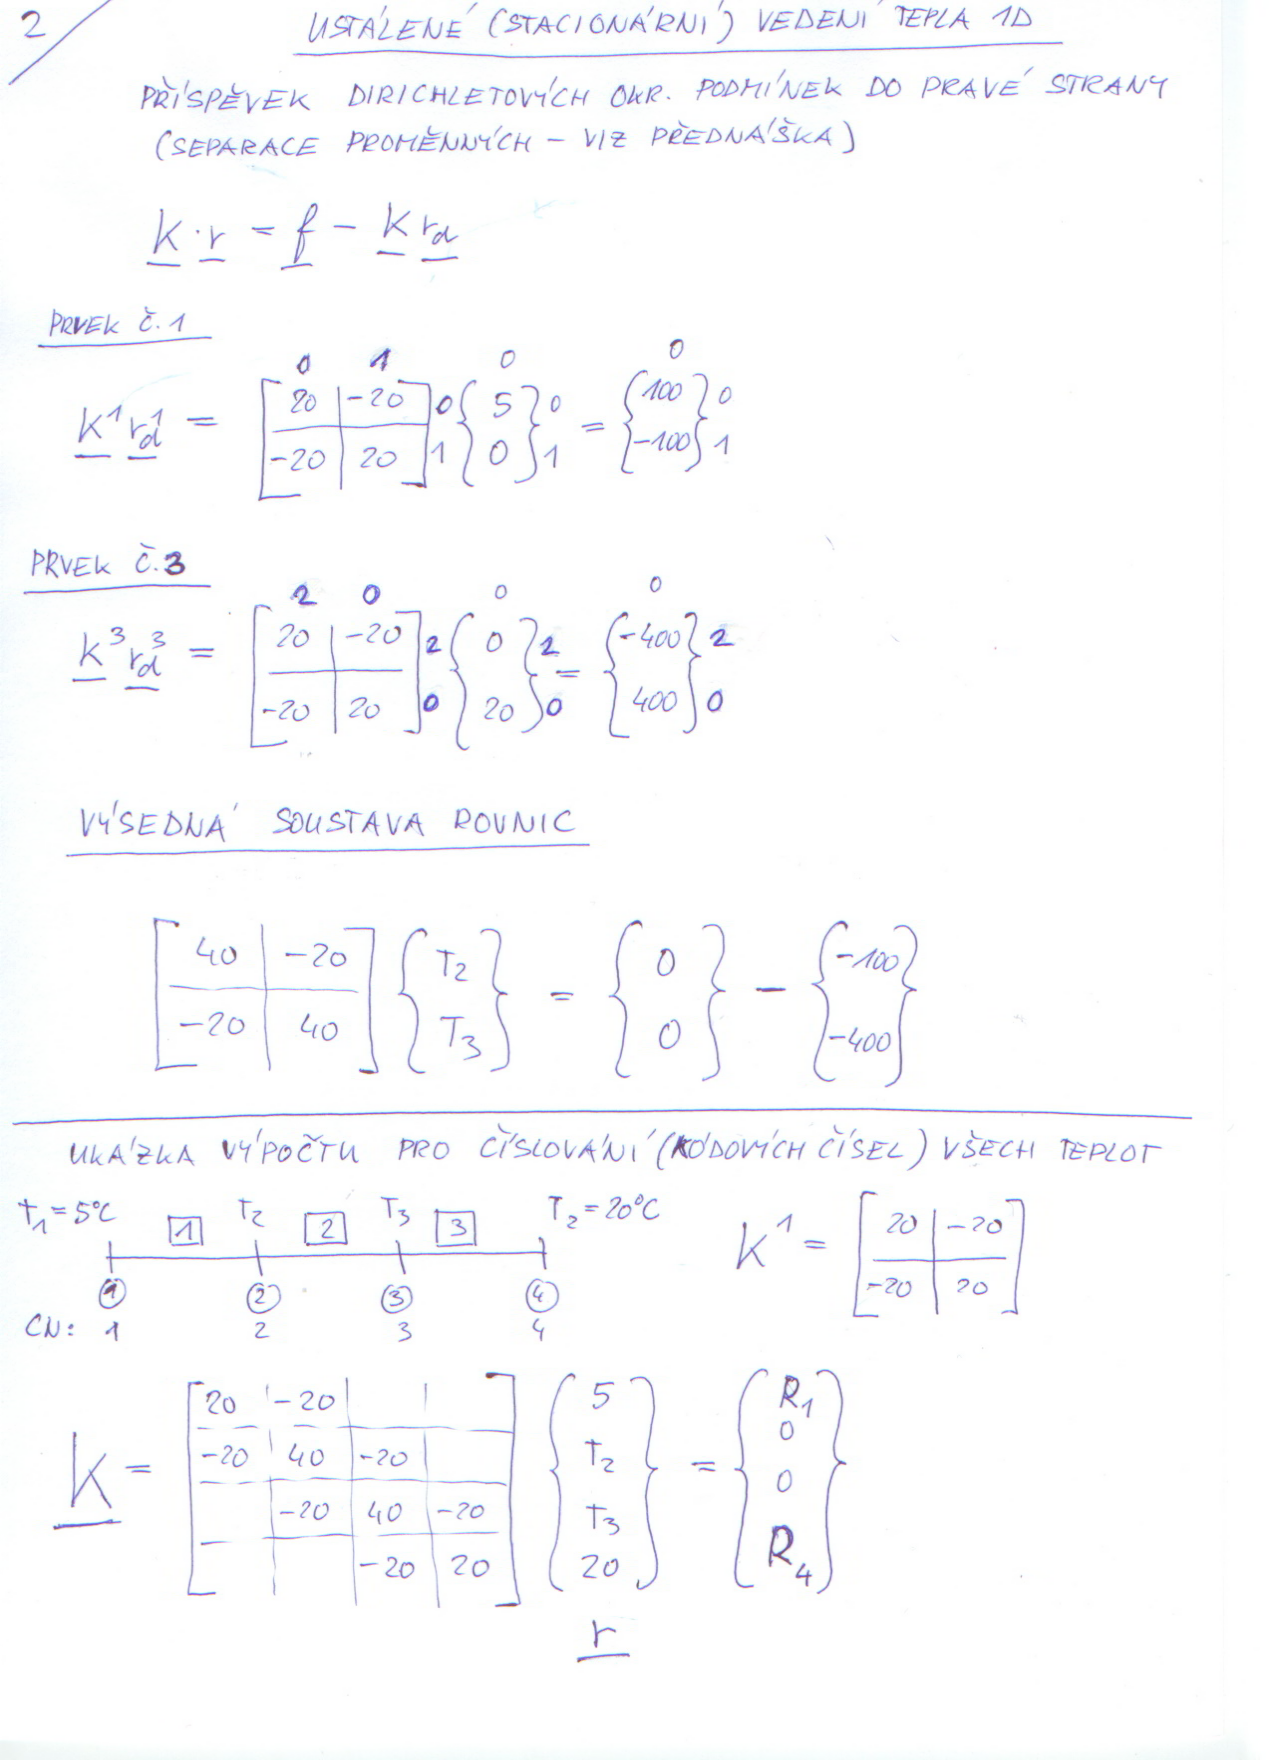 2
USTÁLENÉ (STACIONÁRNÍ) VEDENÍ TEPLA 1D
PŘÍSPĚVEK DIRICHLETOVÝCH OKR. PODMÍNEK DO PRAVÉ STRANY
(SEPARACE PROMĚNNÝCH – VIZ PŘEDNÁŠKA)
K · r = f – K r_d
PRVEK Č.1
0 1 0 0
K^1 r_d^1 = [20 -20; -20 20] 0 1 {5; 0} 0 1 = {100; -100} 0 1
PRVEK Č.3
2 0 0 0
K^3 r_d^3 = [20 -20; -20 20] 2 0 {0; 20} 2 0 = {-400; 400} 2 0
VÝSEDNÁ SOUSTAVA ROVNIC
[40 -20; -20 40] {T_2; T_3} = {0; 0} – {-100; -400}
UKÁZKA VÝPOČTU PRO ČÍSLOVÁNÍ (KÓDOVÝCH ČÍSEL) VŠECH TEPLOT
T_1 = 5°C 1 T_2 2 T_3 3 T_2 = 20°C
K^1 = [20 -20; -20 20]
1 2 3 4
CN: 1 2 3 4
K = [20 -20; -20 40 -20; -20 40 -20; -20 20] {5; T_2; T_3; 20} = {R_1; 0; 0; R_4}
r